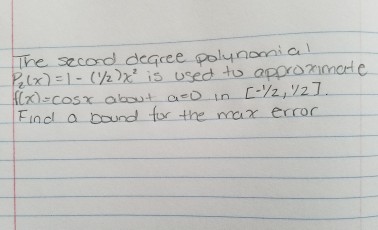 The second degree polynomial
P₂(x)=1-(1/2)x² is used to approximate
f(x)=cosx about a=0 in [-1/2, 1/2].
Find a bound for the max error